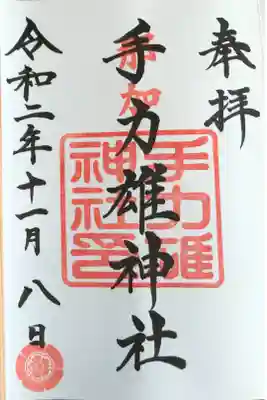 奉拝
手力雄神社
令和二年十一月八日
手力雄
神社印